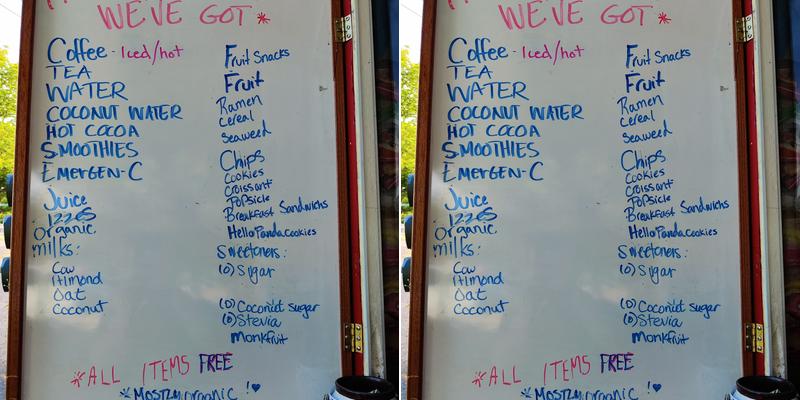 WE'VE GOT *
Coffee - Iced/hot
TEA
WATER
COCONUT WATER
HOT COCOA
SMOOTHIES
EMERGEN-C
Juice
IZZES
Organic
milks:
Cow
Almond
Oat
Coconut
Fruit Snacks
Fruit
Ramen
Cereal
Seaweed
Chips
Cookies
Croissant
Popsicle
Breakfast Sandwichs
Hello Panda Cookies
Sweeteners:
(O) Sugar
(O) Coconut sugar
(O) Stevia
Monkfruit
*ALL ITEMS FREE
*MOSTLY organic !♥
WE'VE GOT *
Coffee - Iced/hot
TEA
WATER
COCONUT WATER
HOT COCOA
SMOOTHIES
EMERGEN-C
Juice
IZZES
Organic
milks:
Cow
Almond
Oat
Coconut
Fruit Snacks
Fruit
Ramen
Cereal
Seaweed
Chips
Cookies
Croissant
Popsicle
Breakfast Sandwichs
Hello Panda Cookies
Sweeteners:
(O) Sugar
(O) Coconut sugar
(O) Stevia
Monkfruit
*ALL ITEMS FREE
*MOSTLY organic !♥